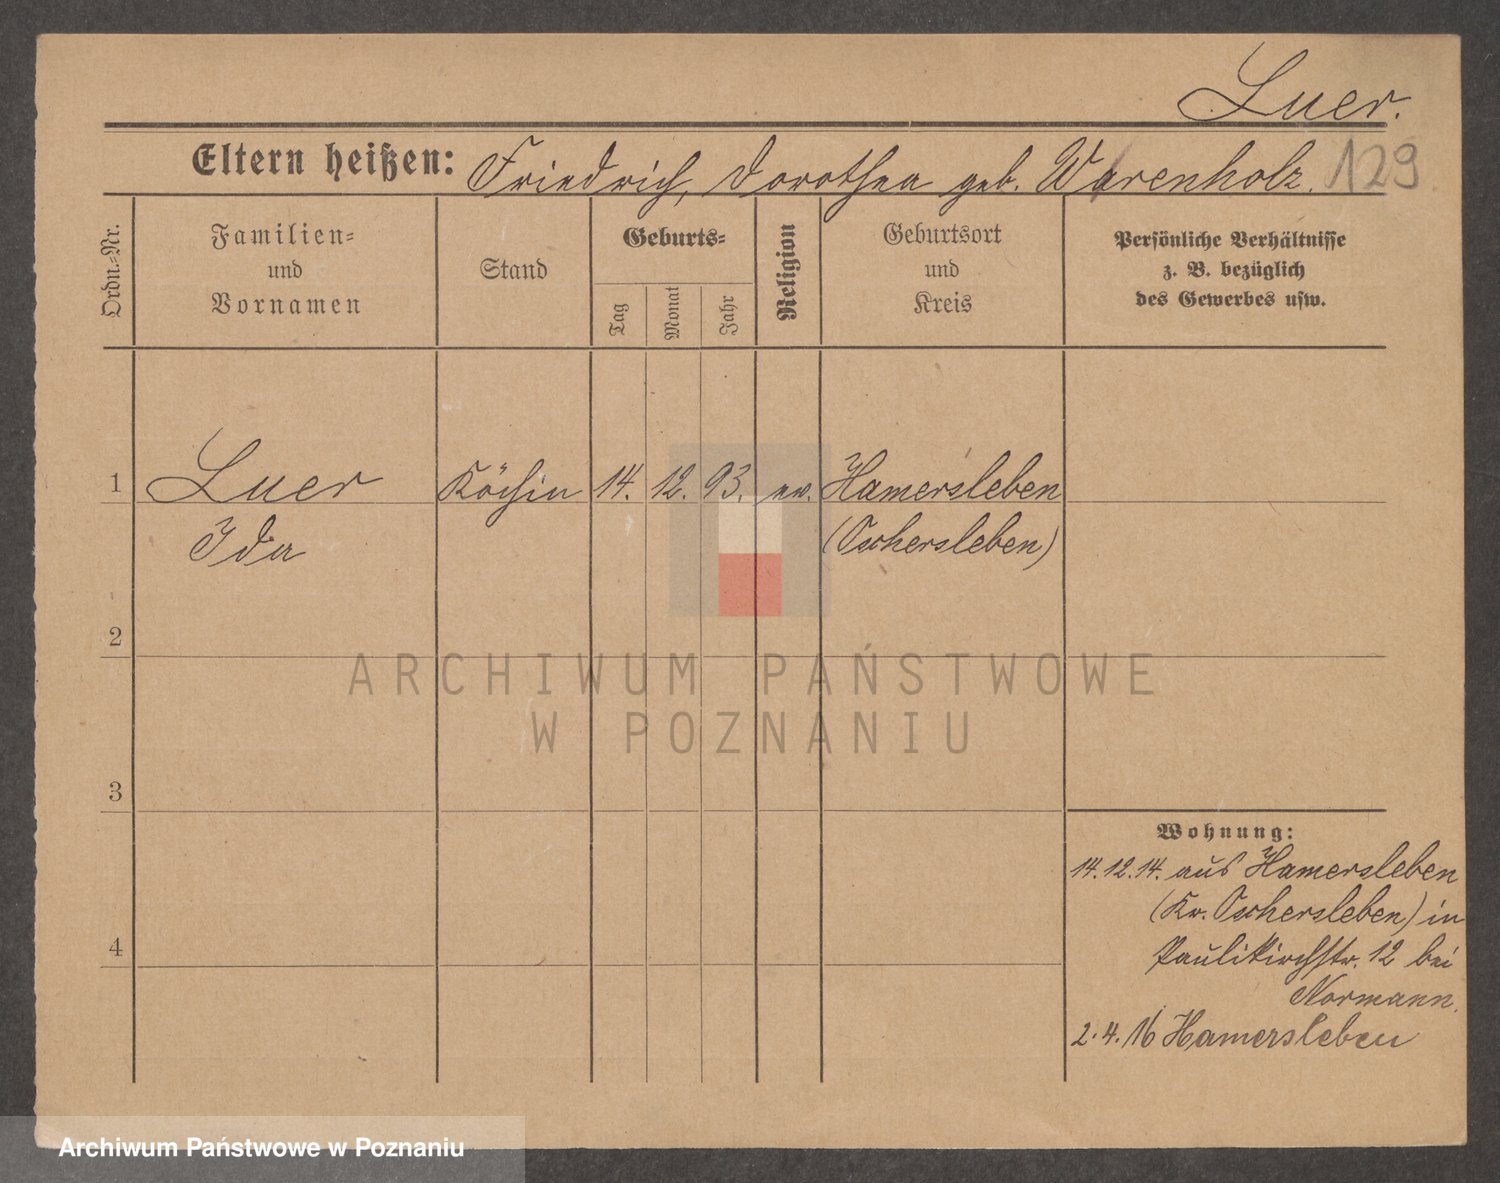 Luer.
Eltern heißen: Friedrich, Dorothea geb. Warenholz. 129
Ordn.-Nr.
Familien-
und
Vornamen
Stand
Geburts-
Tag
Monat
Jahr
Religion
Geburtsort
und
Kreis
Persönliche Verhältnisse
z. B. bezüglich
des Gewerbes usw.
1 Luer Köchin 14. 12. 93. ev. Hamersleben
Ida (Oschersleben)
2
ARCHIWUM PAŃSTWOWE
W POZNANIU
3
Wohnung:
14.12.14. aus Hamersleben
(Kr. Oschersleben) in
Paulikirchstr. 12 bei
4
Normann.
2.4.16 Hamersleben
Archiwum Państwowe w Poznaniu